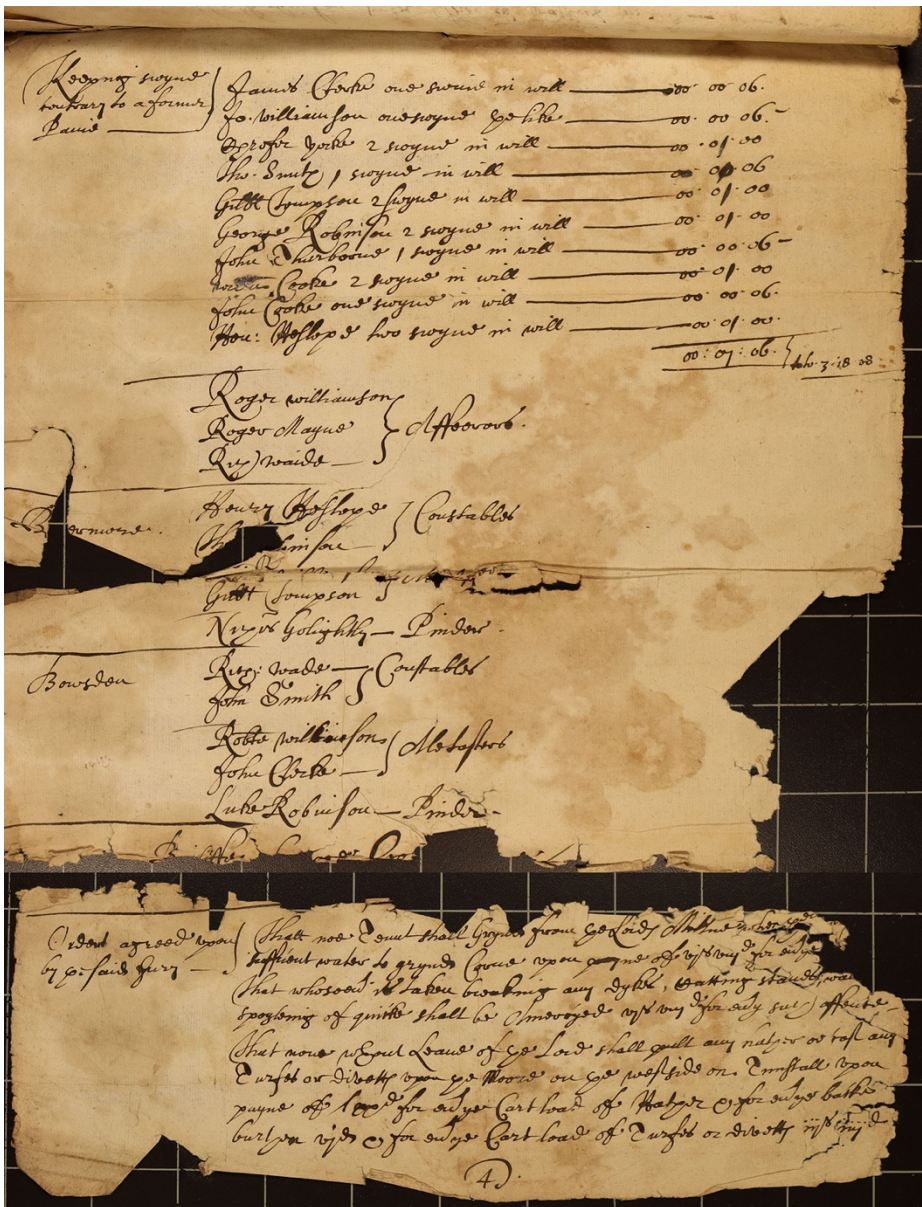 Keeping swyne
contrary to a former
Paine
James Clerke one swine in will 00 00 06.
Jo. williamson one swyne ye like 00 00 06.
Yorke 2 swyne in will 00 01 00
Tho. Smith 1 swyne in will 00 00 06
Gilbt Tompson 2 swyne in will 00 01 00
George Robinson 2 swyne in will 00 01 00
John Thurborne 1 swyne in will 00 00 06
Cooke 2 swyne in will 00 01 00
John Cooke one swyne in will 00 00 06.
Hen: Heslope two swyne in will 00 01 00.
00: 07: 06. 3 18 08
Roger williamson
Roger Mayne Afferors.
Rich waide
Henry Heslope Constables
Gilbt Tompson
Golightly Pinder.
Bowsden
Rich: wade Constables
John Smith
Robte williamson Aletasters
John Clerke
Luke Robinson Pinder
Orders agreed upon
by ye said Jury
That noe Tennt shall Grynde from ye Lords Milne
suffitient water to grynde Corne upon payne of vjs viijd for evye
That whosoevr is taken breaking any dykes,
of quicke shall be Amerceyed vjs viijd for evy such offence
That none wthout Leave of ye Lord shall pull any hather or cast any
Turfes or divetts upon ye Moore on ye westside on Tunstall upon
payne of for evye Cart load of Hather & for evye backe
burthen vjd & for evye Cart load of Turfes or divetts iijs iiijd
4